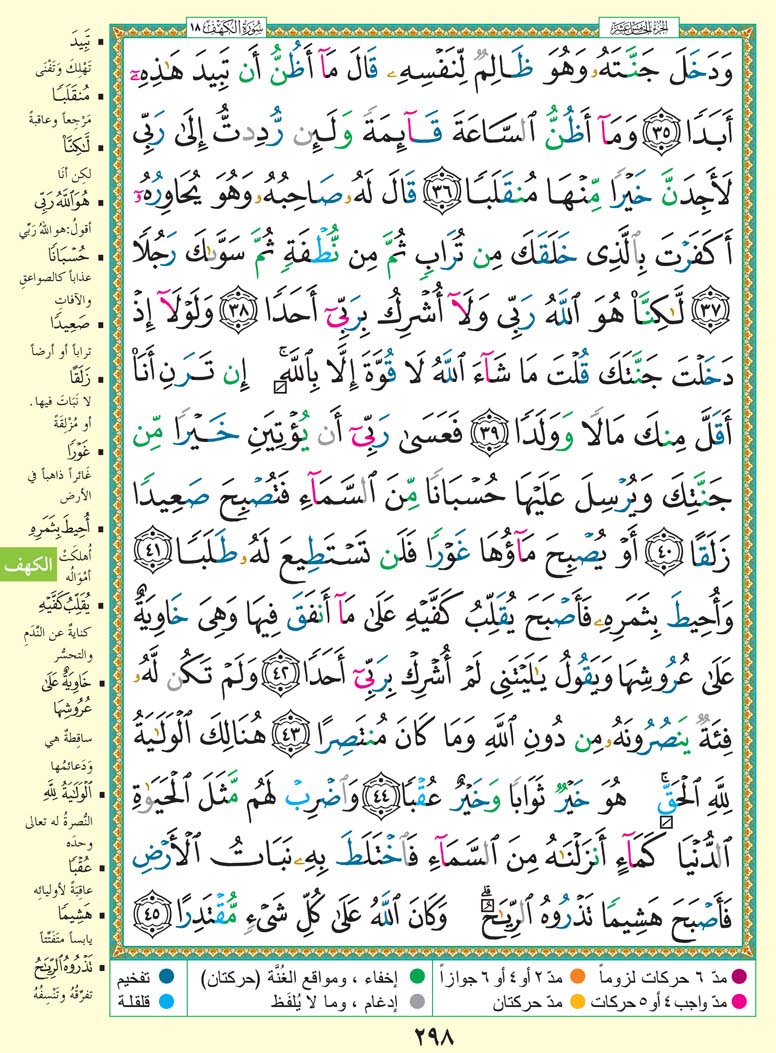 الجزء الخامس عشر
سورة الكهف ١٨
وَدَخَلَ جَنَّتَهُۥ وَهُوَ ظَالِمٌ لِّنَفْسِهِۦ قَالَ مَآ أَظُنُّ أَن تَبِيدَ هَٰذِهِۦٓ
أَبَدًا ٣٥ وَمَآ أَظُنُّ ٱلسَّاعَةَ قَآئِمَةً وَلَئِن رُّدِدتُّ إِلَىٰ رَبِّى
لَأَجِدَنَّ خَيْرًا مِّنْهَا مُنقَلَبًا ٣٦ قَالَ لَهُۥ صَاحِبُهُۥ وَهُوَ يُحَاوِرُهُۥٓ
أَكَفَرْتَ بِٱلَّذِى خَلَقَكَ مِن تُرَابٍ ثُمَّ مِن نُّطْفَةٍ ثُمَّ سَوَّىٰكَ رَجُلًا
٣٧ لَّٰكِنَّا۠ هُوَ ٱللَّهُ رَبِّى وَلَآ أُشْرِكُ بِرَبِّىٓ أَحَدًا ٣٨ وَلَوْلَآ إِذْ
دَخَلْتَ جَنَّتَكَ قُلْتَ مَا شَآءَ ٱللَّهُ لَا قُوَّةَ إِلَّا بِٱللَّهِ ۚ إِن تَرَنِ أَنَا۠
أَقَلَّ مِنكَ مَالًا وَوَلَدًا ٣٩ فَعَسَىٰ رَبِّىٓ أَن يُؤْتِيَنِ خَيْرًا مِّن
جَنَّتِكَ وَيُرْسِلَ عَلَيْهَا حُسْبَانًا مِّنَ ٱلسَّمَآءِ فَتُصْبِحَ صَعِيدًا
زَلَقًا ٤٠ أَوْ يُصْبِحَ مَآؤُهَا غَوْرًا فَلَن تَسْتَطِيعَ لَهُۥ طَلَبًا ٤١
وَأُحِيطَ بِثَمَرِهِۦ فَأَصْبَحَ يُقَلِّبُ كَفَّيْهِ عَلَىٰ مَآ أَنفَقَ فِيهَا وَهِىَ خَاوِيَةٌ
عَلَىٰ عُرُوشِهَا وَيَقُولُ يَٰلَيْتَنِى لَمْ أُشْرِكْ بِرَبِّىٓ أَحَدًا ٤٢ وَلَمْ تَكُن لَّهُۥ
فِئَةٌ يَنصُرُونَهُۥ مِن دُونِ ٱللَّهِ وَمَا كَانَ مُنتَصِرًا ٤٣ هُنَالِكَ ٱلْوَلَٰيَةُ
لِلَّهِ ٱلْحَقِّ ۚ هُوَ خَيْرٌ ثَوَابًا وَخَيْرٌ عُقْبًا ٤٤ وَٱضْرِبْ لَهُم مَّثَلَ ٱلْحَيَوٰةِ
ٱلدُّنْيَا كَمَآءٍ أَنزَلْنَٰهُ مِنَ ٱلسَّمَآءِ فَٱخْتَلَطَ بِهِۦ نَبَاتُ ٱلْأَرْضِ
فَأَصْبَحَ هَشِيمًا تَذْرُوهُ ٱلرِّيَٰحُ ۗ وَكَانَ ٱللَّهُ عَلَىٰ كُلِّ شَىْءٍ مُّقْتَدِرًا ٤٥
تَبِيدَ
تَهْلِكَ وَتَفْنَى
مُنقَلَبًا
مَرْجِعاً وعاقبةً
لَّٰكِنَّا۠
لكن أنَا
هُوَ ٱللَّهُ رَبِّى
أقولُ: هو اللهُ رَبِّي
حُسْبَانًا
عذاباً كالصواعقِ
والآفاتِ
صَعِيدًا
تراباً أو أرضاً
زَلَقًا
لا نَبَاتَ فيها .
أو مُزْلِقَةً
غَوْرًا
غَائراً ذاهباً في
الأرض
أُحِيطَ بِثَمَرِهِ
أُهلكَتْ
أمْوَالُه
الكهف
يُقَلِّبُ كَفَّيْهِ
كنايةٌ عن النَّدَمِ
والتحسُّرِ
خَاوِيَةٌ عَلَىٰ
عُرُوشِهَا
ساقطةٌ هي
وَدَعائمُها
ٱلْوَلَٰيَةُ لِلَّهِ
النُّصرةُ له تعالى
وحدَه
عُقْبًا
عاقبَةً لأوليائِه
هَشِيمًا
يابساً متَفَتِّتاً
تَذْرُوهُ ٱلرِّيَٰحُ
تفرِّقُهُ وتَنْسِفُهُ
مدّ ٦ حركات لزوماً
مدّ ٢ أو ٤ أو ٦ جوازاً
إخفاء ، ومواقع الغُنَّة (حركتان)
تفخيم
مدّ واجب ٤ أو ٥ حركات
مدّ حركتان
إدغام ، وما لا يُلفَظ
قلقلة
٢٩٨